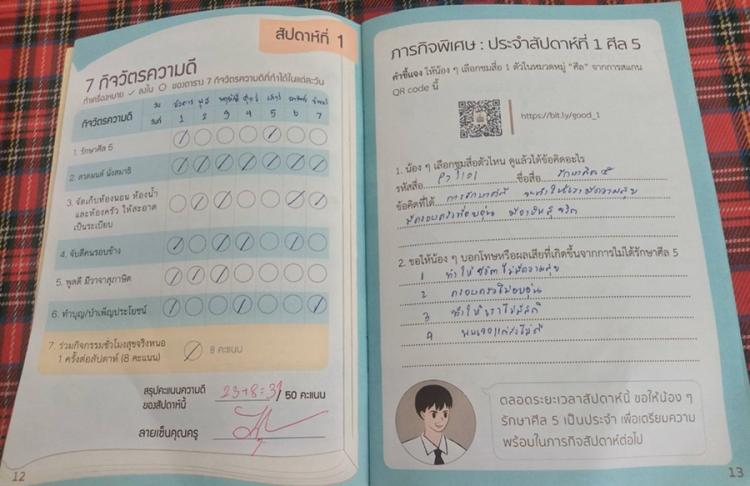 สัปดาห์ที่ 1
7 กิจวัตรความดี
ทำเครื่องหมาย ✓ ลงใน ○ ของตาราง 7 กิจวัตรความดีที่ทำได้ในแต่ละวัน
กิจวัตรความดี
วัน
วันที่ 1 2 3 4 5 6 7
1. รักษาศีล 5
2. สวดมนต์ นั่งสมาธิ
3. จัดเก็บห้องนอน ห้องน้ำ
และห้องครัว ให้สะอาด
เป็นระเบียบ
4. จับดีคนรอบข้าง
5. พูดดี มีวาจาสุภาษิต
6. ทำบุญ/บำเพ็ญประโยชน์
7. ร่วมกิจกรรมชั่วโมงสุขจริงหนอ
1 ครั้งต่อสัปดาห์ (8 คะแนน)
8 คะแนน
สรุปคะแนนความดี
ของสัปดาห์นี้
23+8=31 / 50 คะแนน
ลายเซ็นคุณครู
12
ภารกิจพิเศษ : ประจำสัปดาห์ที่ 1 ศีล 5
คำชี้แจง ให้น้อง ๆ เลือกชมสื่อ 1 ตัวในหมวดหมู่ "ศีล" จากการสแกน
QR code นี้
https://bit.ly/good_1
1. น้อง ๆ เลือกชมสื่อตัวไหน ดูแล้วได้ข้อคิดอะไร
รหัสสื่อ ชื่อสื่อ รักษาศีล ๕
ข้อคิดที่ได้ การรักษาศีล จะทำให้เรามีความสุข
มีครอบครัวที่อบอุ่น
2. ขอให้น้อง ๆ บอกโทษหรือผลเสียที่เกิดขึ้นจากการไม่ได้รักษาศีล 5
1 ทำให้ชีวิตไม่มีความสุข
2 ครอบครัวไม่อบอุ่น
3 ทำให้เราไม่มีสติ
4
ตลอดระยะเวลาสัปดาห์นี้ ขอให้น้อง ๆ
รักษาศีล 5 เป็นประจำ เพื่อเตรียมความ
พร้อมในภารกิจสัปดาห์ต่อไป
13